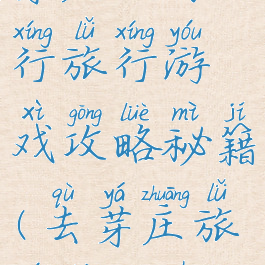 xíng lǚ xíng yóu
行旅行游
xì gōng lüè mì jí
戏攻略秘籍
qù yá zhuāng lǚ
(去芽庄旅